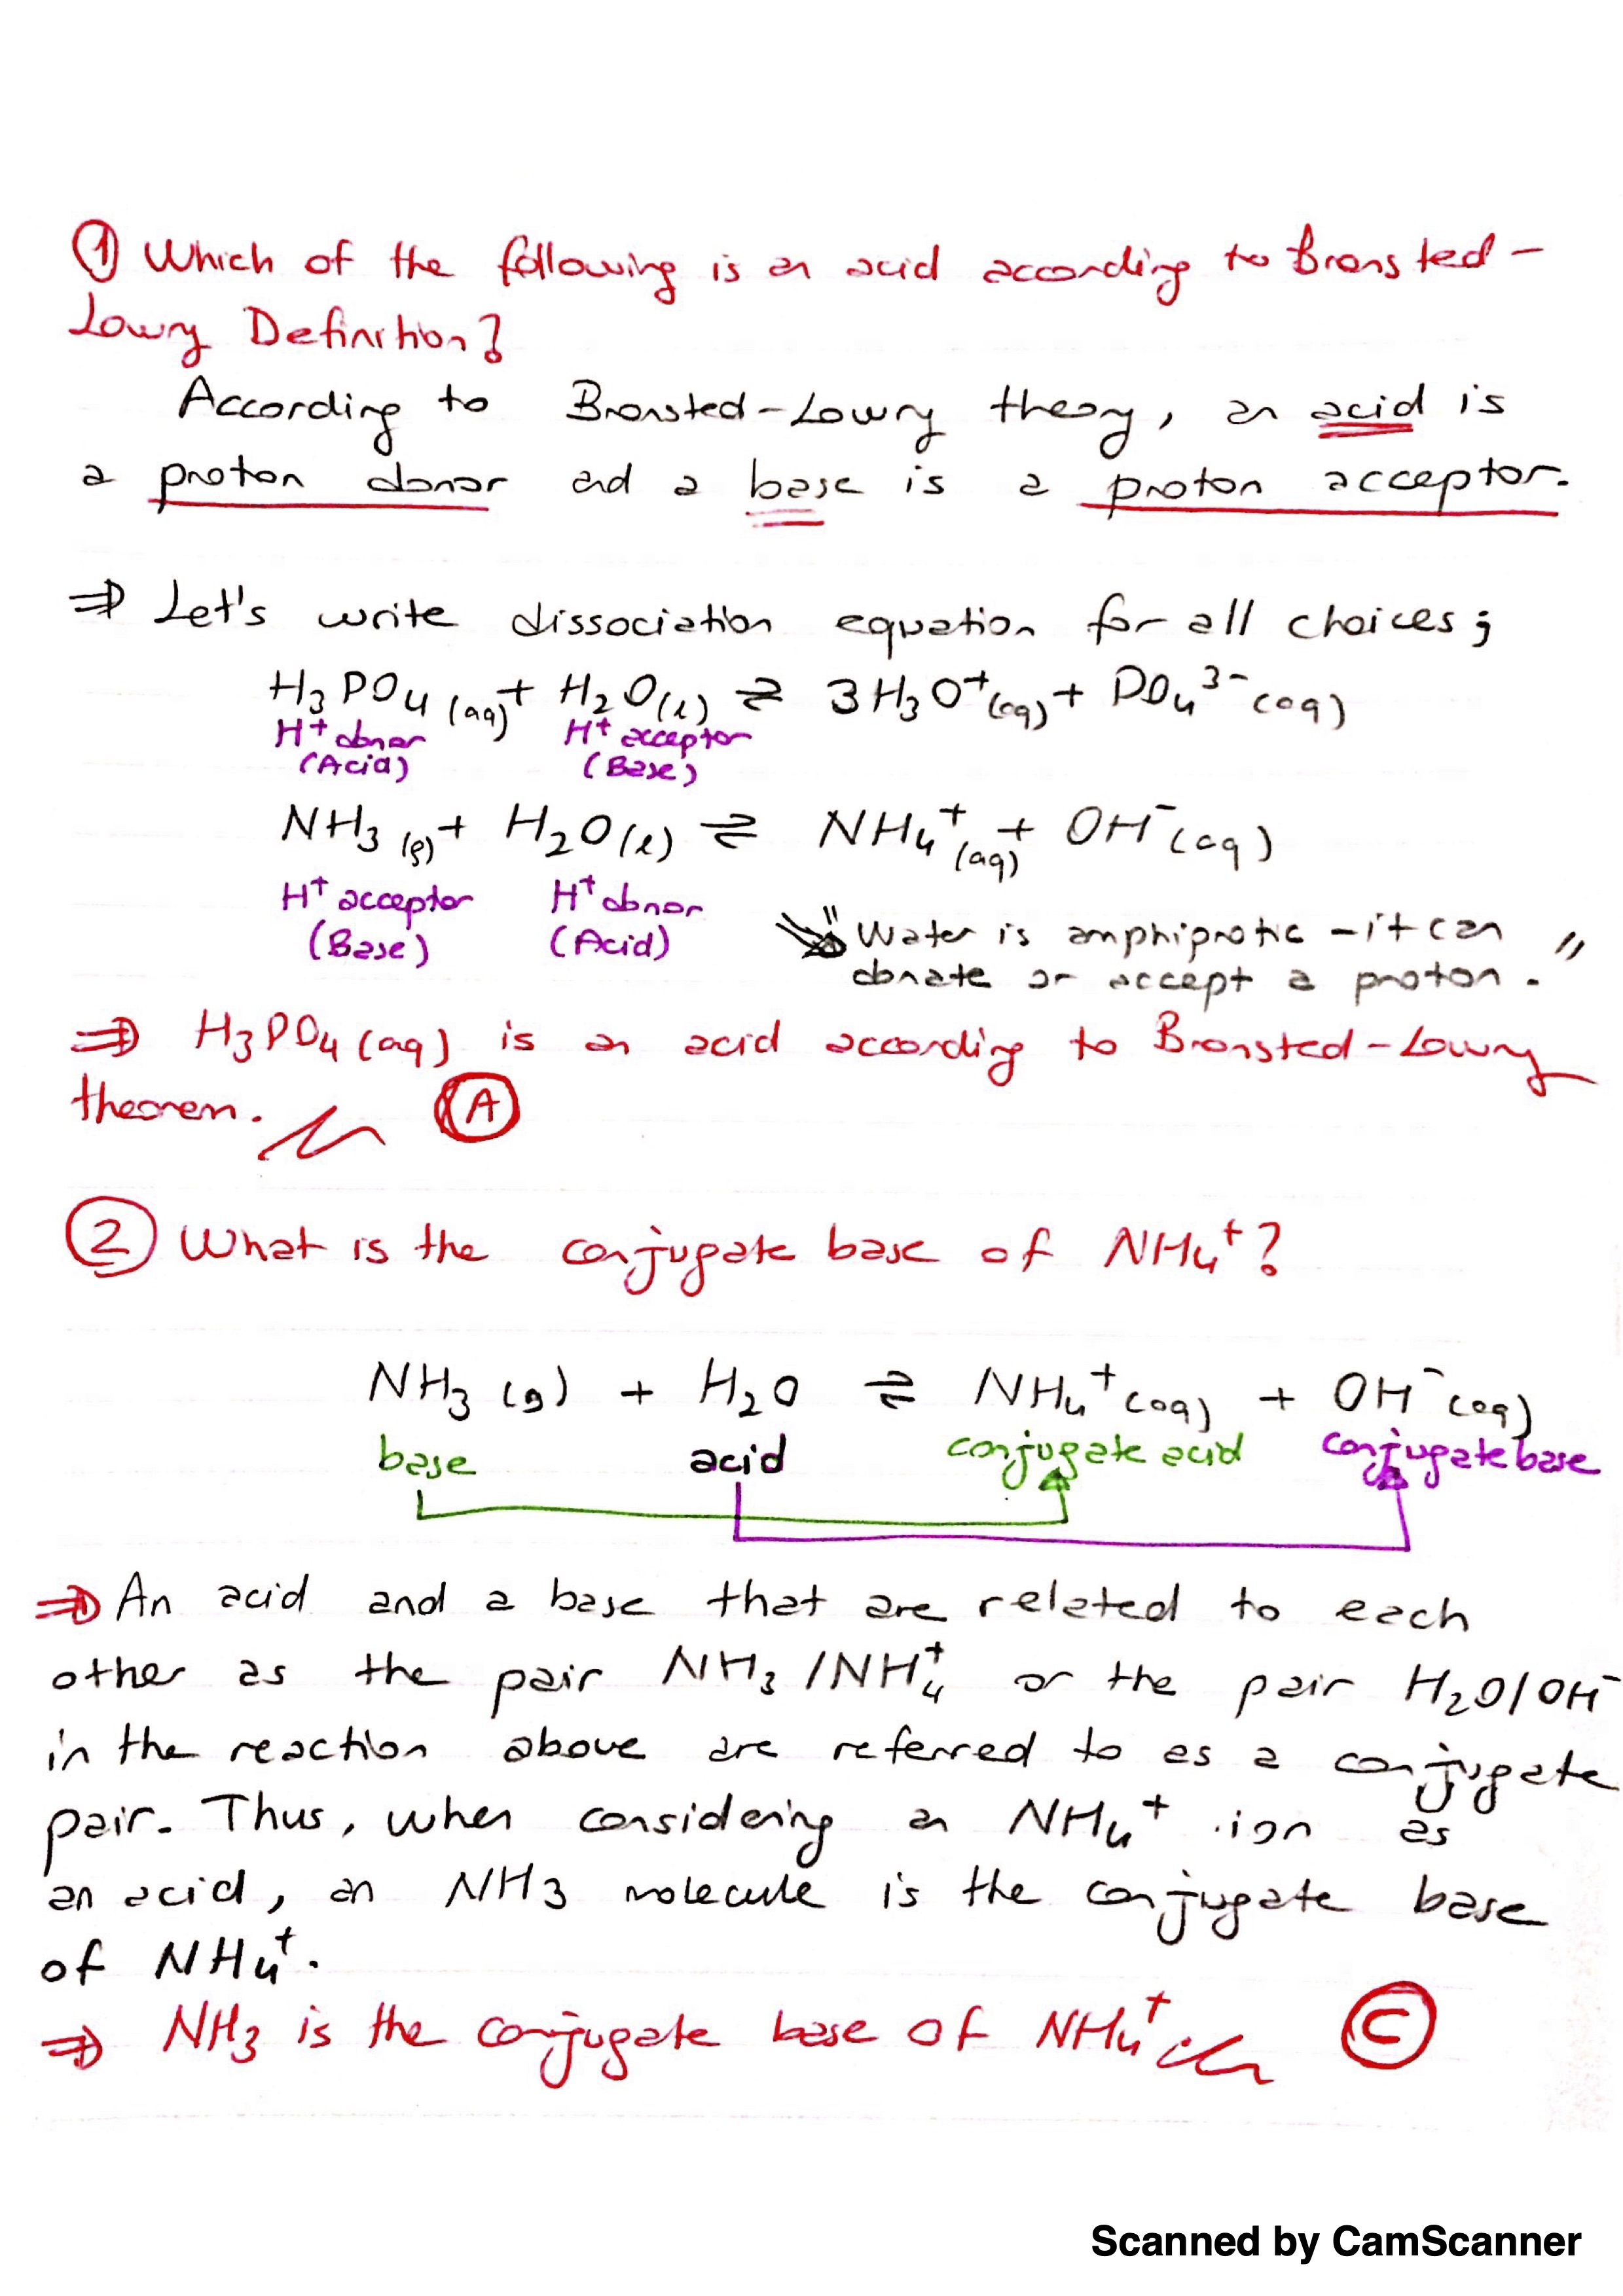 ① Which of the following is an acid according to Bronsted-
Lowry Definition?
According to Bronsted-Lowry theory, an acid is
a proton donor and a base is a proton acceptor.
⇒ Let's write dissociation equation for all choices;
H₃PO₄(aq) + H₂O(l) ⇌ 3H₃O⁺(aq) + PO₄³⁻(aq)
H⁺ donor H⁺ acceptor
(Acid) (Base)
NH₃(g) + H₂O(l) ⇌ NH₄⁺(aq) + OH⁻(aq)
H⁺ acceptor H⁺ donor
(Base) (Acid)
"Water is amphiprotic - it can
donate or accept a proton."
⇒ H₃PO₄(aq) is an acid according to Bronsted-Lowry
theorem. A
② What is the conjugate base of NH₄⁺?
NH₃(g) + H₂O ⇌ NH₄⁺(aq) + OH⁻(aq)
base acid conjugate acid conjugate base
⇒ An acid and a base that are related to each
other as the pair NH₃/NH₄⁺ or the pair H₂O/OH⁻
in the reaction above are referred to as a conjugate
pair. Thus, when considering an NH₄⁺ ion as
an acid, an NH3 molecule is the conjugate base
of NH₄⁺.
⇒ NH₃ is the conjugate base of NH₄⁺ C
Scanned by CamScanner